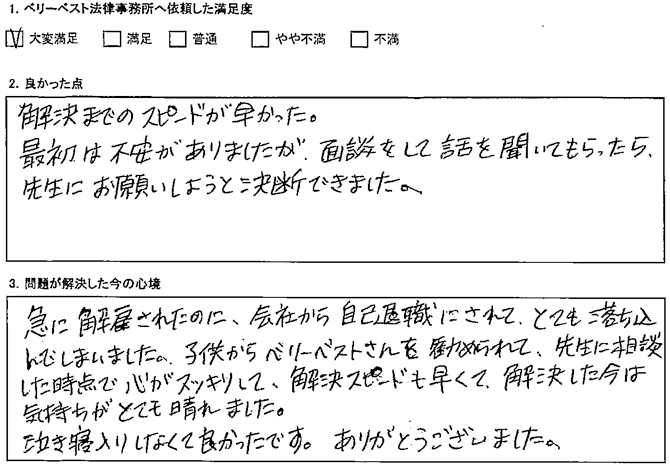 1. ベリーベスト法律事務所へ依頼した満足度
大変満足 満足 普通 やや不満 不満
2. 良かった点
解決までのスピードが早かった。
最初は不安がありましたが、面談をして話を聞いてもらったら、
先生にお願いしようと決断できました。
3. 問題が解決した今の心境
急に解雇されたのに、会社から自己退職にされて、とても落ち込
んでしまいました。子供からベリーベストさんを勧められて、先生に相談
した時点で心がスッキリして、解決スピードも早くて、解決した今は
気持ちがとても晴れました。
泣き寝入りしなくて良かったです。ありがとうございました。